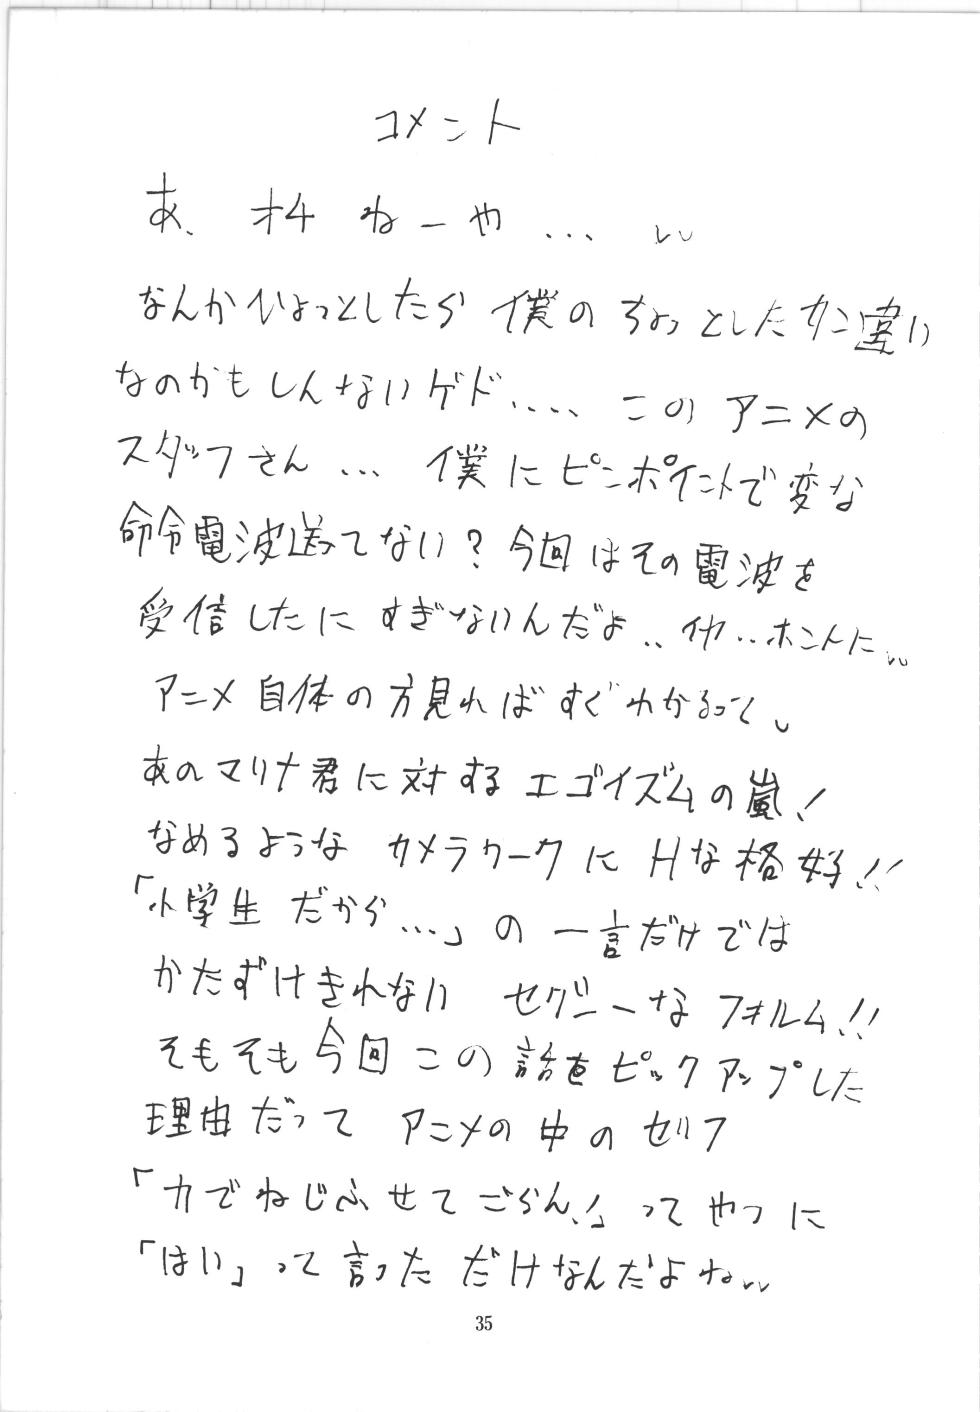 コメント
あ、オチねーや...
なんかひょっとしたら僕のちょっとしたカン違い
なのかもしんないケド.... このアニメの
スタッフさん... 僕にピンポイントで変な
命令電波送ってない？今回はその電波を
受信したにすぎないんだよ..イヤ..ホントに
アニメ自体の方見ればすぐわかるって。
あのマリナ君に対するエゴイズムの嵐！
なめるようなカメラワークにHな格好！！
「小学生だから...」の一言だけでは
かたずけきれないセクシーなフォルム！！
そもそも今回この話をピックアップした
理由だってアニメの中のセリフ
「力でねじふせてごらん！」ってやつに
「はい」って言っただけなんだよね
35